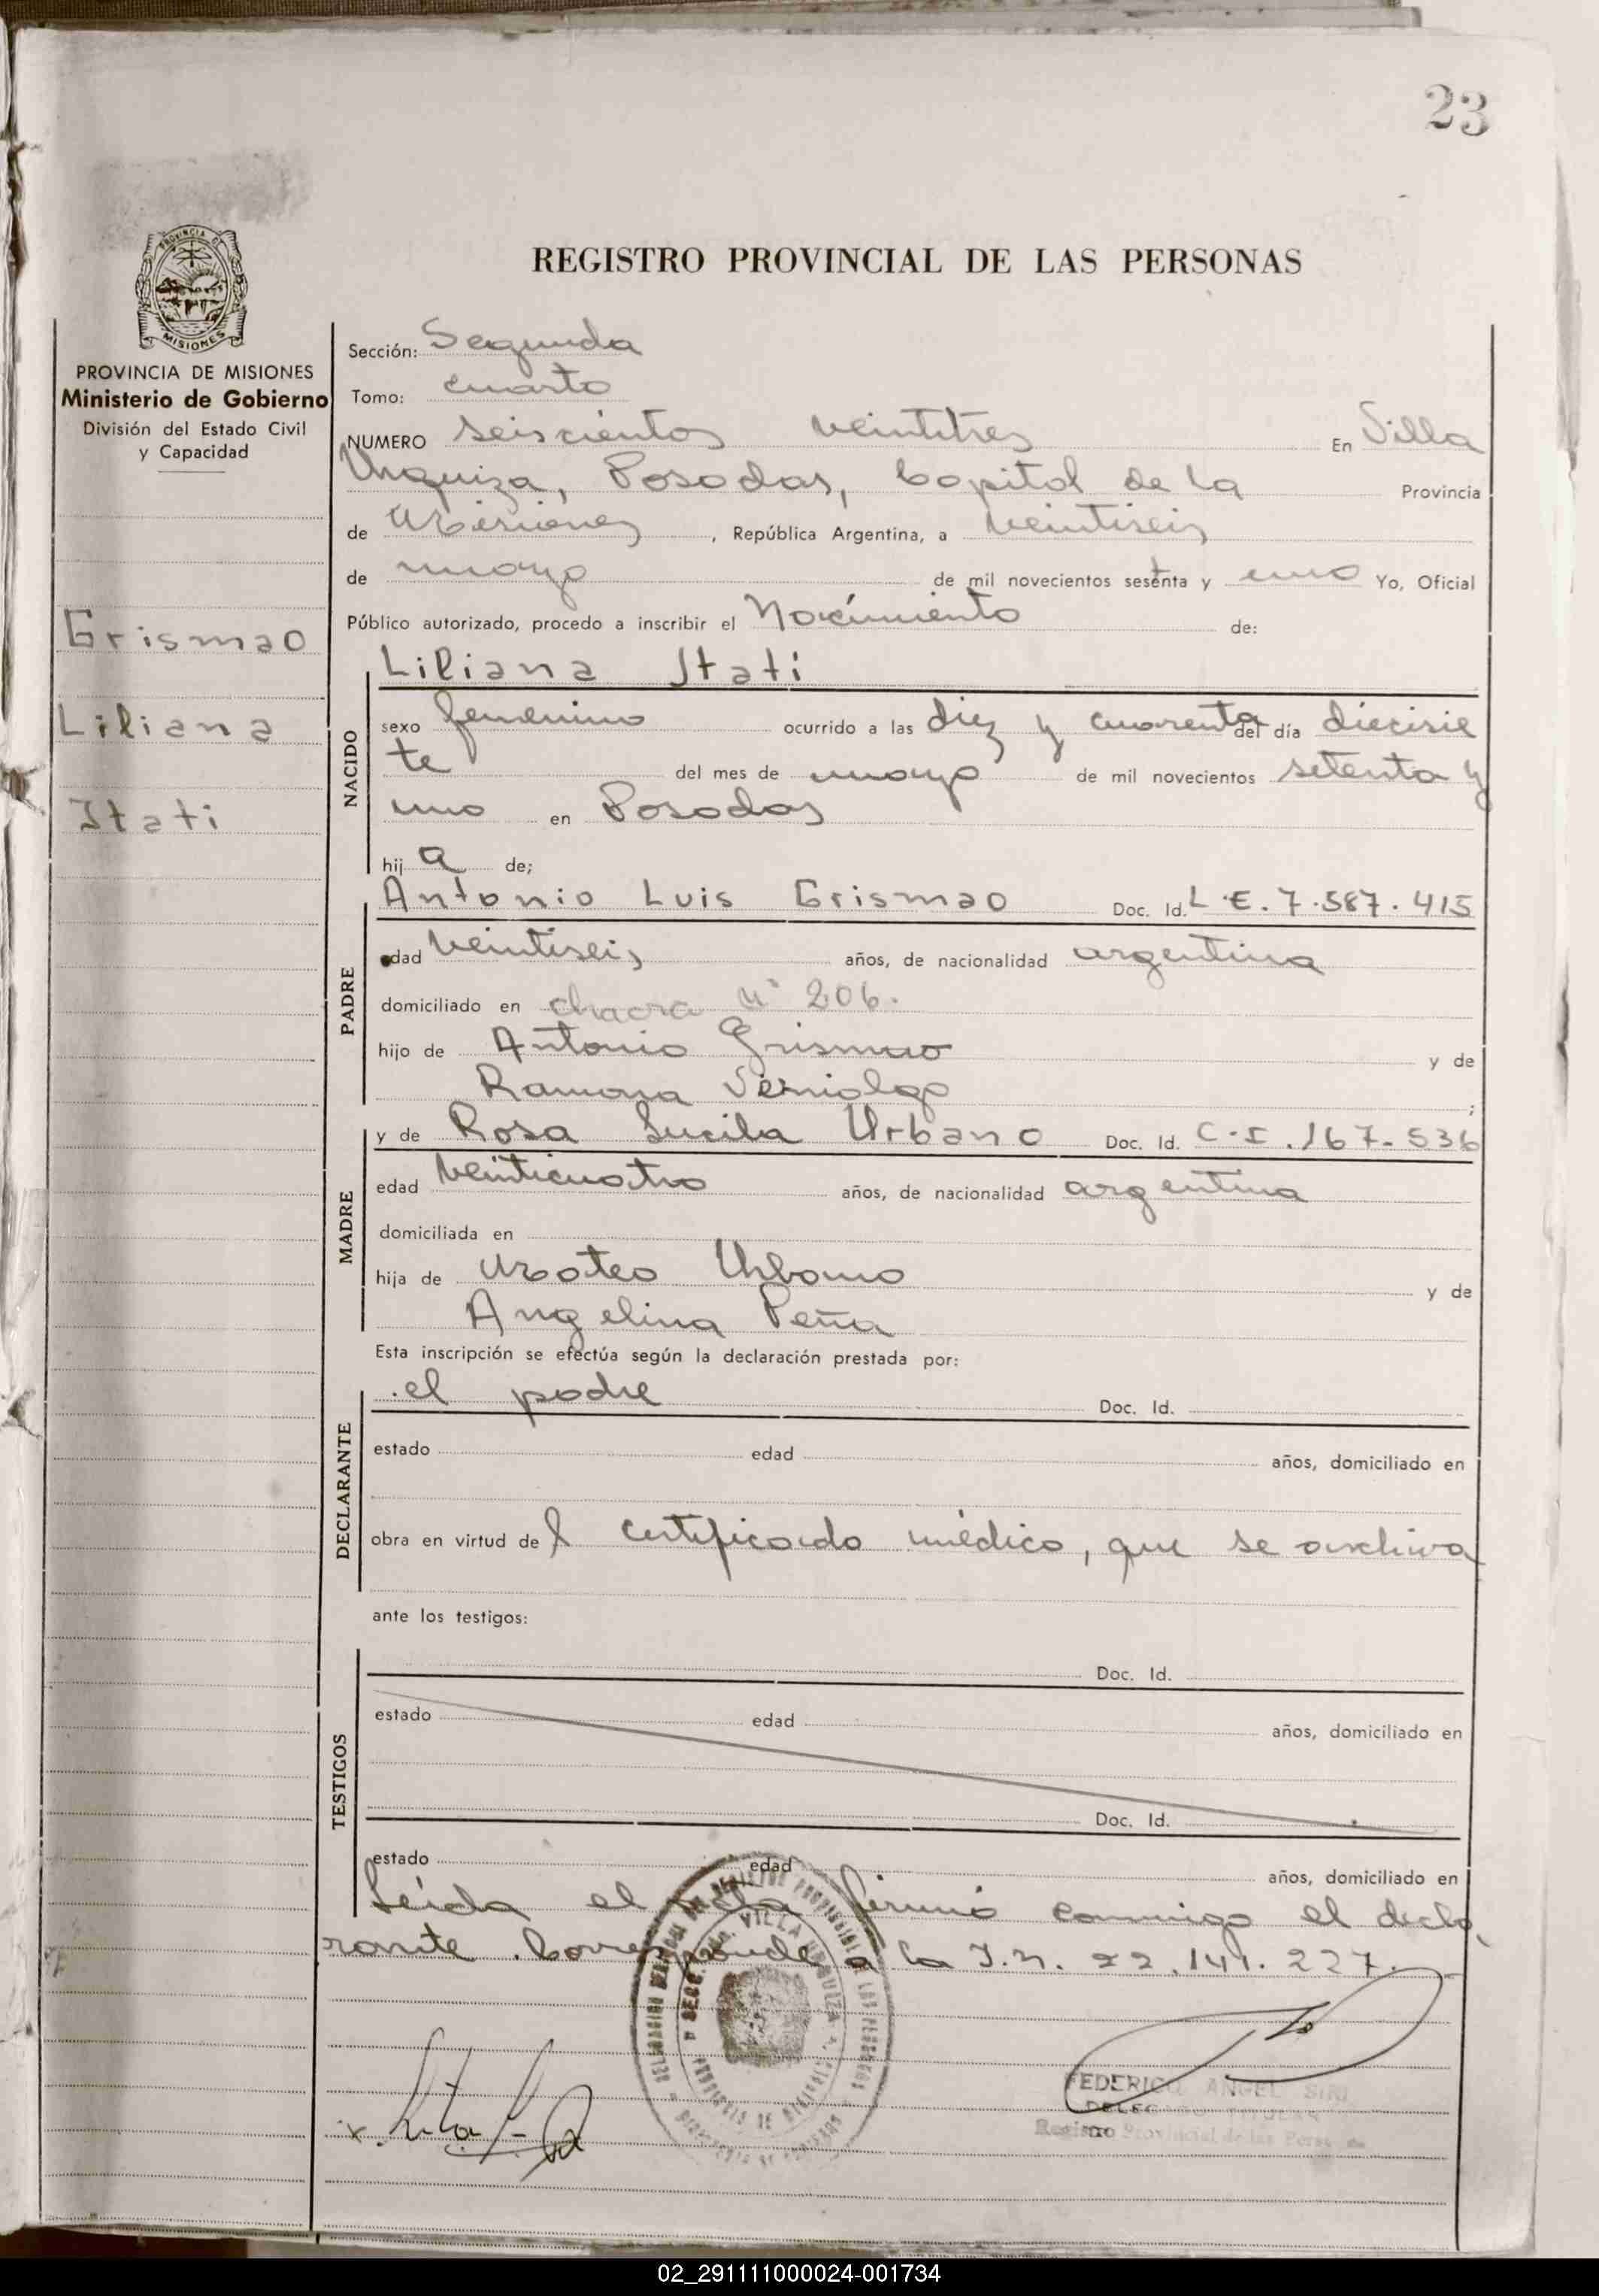 23
PROVINCIA DE
MISIONES
PROVINCIA DE MISIONES
Ministerio de Gobierno
División del Estado Civil
y Capacidad
Grismao
Liliana
Itati
REGISTRO PROVINCIAL DE LAS PERSONAS
Sección: Segunda
Tomo: cuarto
NUMERO seiscientos veintitres En Villa
Urquiza, Posadas, Capital de la Provincia
de Misiones, República Argentina, a veintiseis
de mayo de mil novecientos sesenta y uno Yo, Oficial
Público autorizado, procedo a inscribir el Nacimiento de:
NACIDO
Liliana Itati
sexo femenino ocurrido a las diez y cuarenta del día diecisie
te del mes de mayo de mil novecientos setenta y
uno en Posadas
hij a de;
PADRE
Antonio Luis Grismao Doc. Id. L.E. 7.587.415
edad veintiseis años, de nacionalidad argentina
domiciliado en chacra n° 206.
hijo de Antonio Grismao y de
Ramona ;
MADRE
y de Rosa Lucila Urbano Doc. Id. C.I. 167.536
edad veinticuatro años, de nacionalidad argentina
domiciliada en
hija de Mateo Urbano y de
Angelina Peña
Esta inscripción se efectúa según la declaración prestada por:
DECLARANTE
el padre Doc. Id.
estado edad años, domiciliado en
obra en virtud de l certificado médico, que se archiva
ante los testigos:
TESTIGOS
Doc. Id.
estado edad años, domiciliado en
Doc. Id.
estado edad años, domiciliado en
Leída el acta firmó conmigo el decla
rante. Corresponde a la I.N. 22.141.227.
VILLA URQUIZA
FEDERICO ANGEL
DELEGADO TITULAR
Registro Provincial de las Personas
02_291111000024-001734